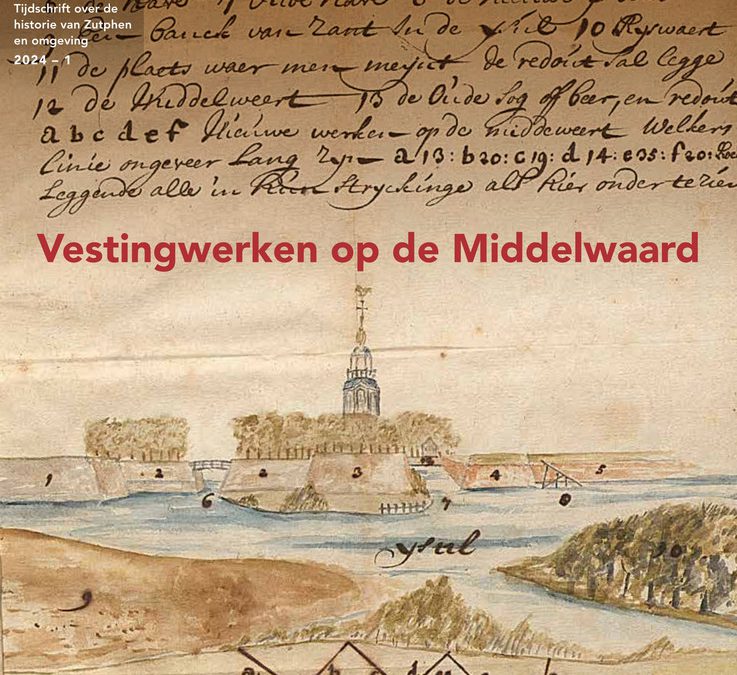 Tijdschrift over de
historie van Zutphen
en omgeving
2024 – 1
Banck van zant In de ysul 10 Ryswaert
11 de plaets waer men meynt de redout sal legge
12 de Middelweert 13 de Oude Sog off beer, en redout
a b c d e f Nieuwe werken op de middeweert Welkers
Linie ongeveer Lang zyn a 13: b 20: c 19: d 14: e 35: f 20:
Leggende alle in Stryckinge als hier onder te zien
Vestingwerken op de Middelwaard
1 2 2 3 4 5
6 7 8
ysul
10
9